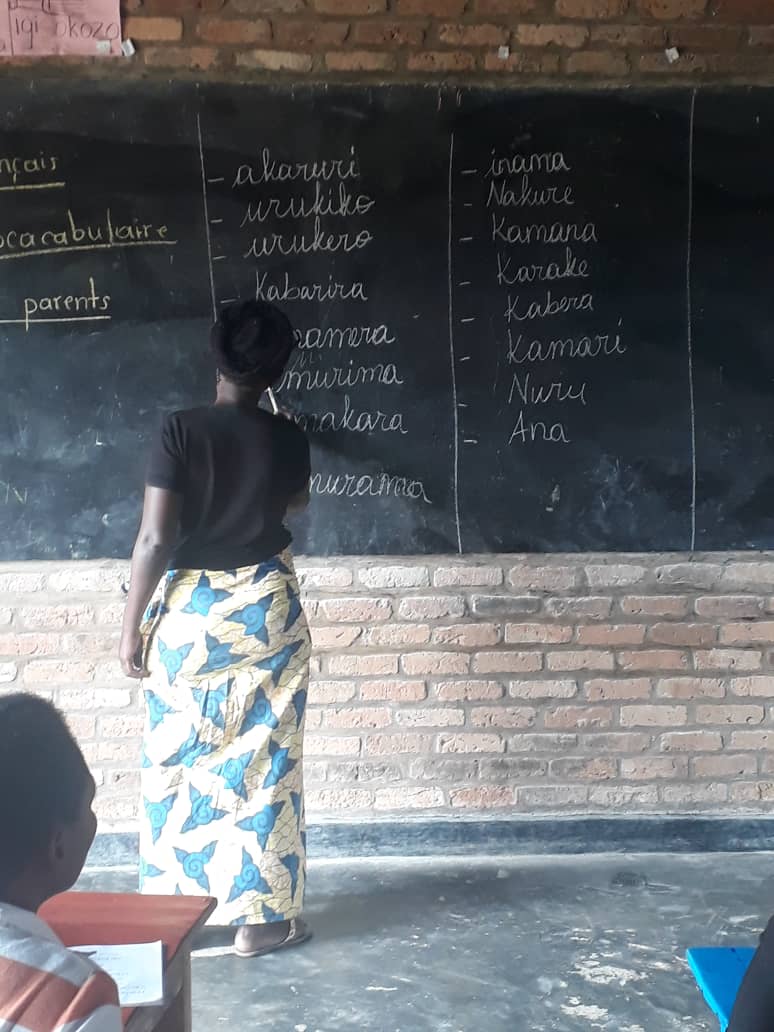 igi okozo
nçais
ocacabulaire
parents
- akaruri
- urukiko
- urukero
- Kabarira
namera
murima
makara
murama
- inama
- Nakure
- Kamana
- Karake
- Kabera
- Kamari
- Nuru
- Ana